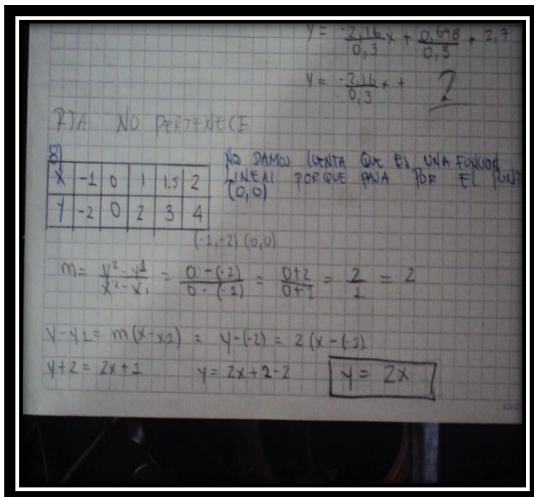 y = -2,16/0,3 x + 0,648/0,3 + 2,7
y = -2,16/0,3 x + 2
RTA NO PERTENECE
8)
X -1 0 1 1.5 2
Y -2 0 2 3 4
NOS DAMOS CUENTA QUE ES UNA FUNCION
LINEAL PORQUE PASA POR EL PUNT
(0,0)
(-1,-2) (0,0)
m = y2-y1/x2-x1 = 0-(-2)/0-(-1) = 0+2/0+1 = 2/1 = 2
y-y1 = m(x-x1) = y-(-2) = 2(x-(-1)
y+2 = 2x+1 y = 2x+2-2 y = 2x